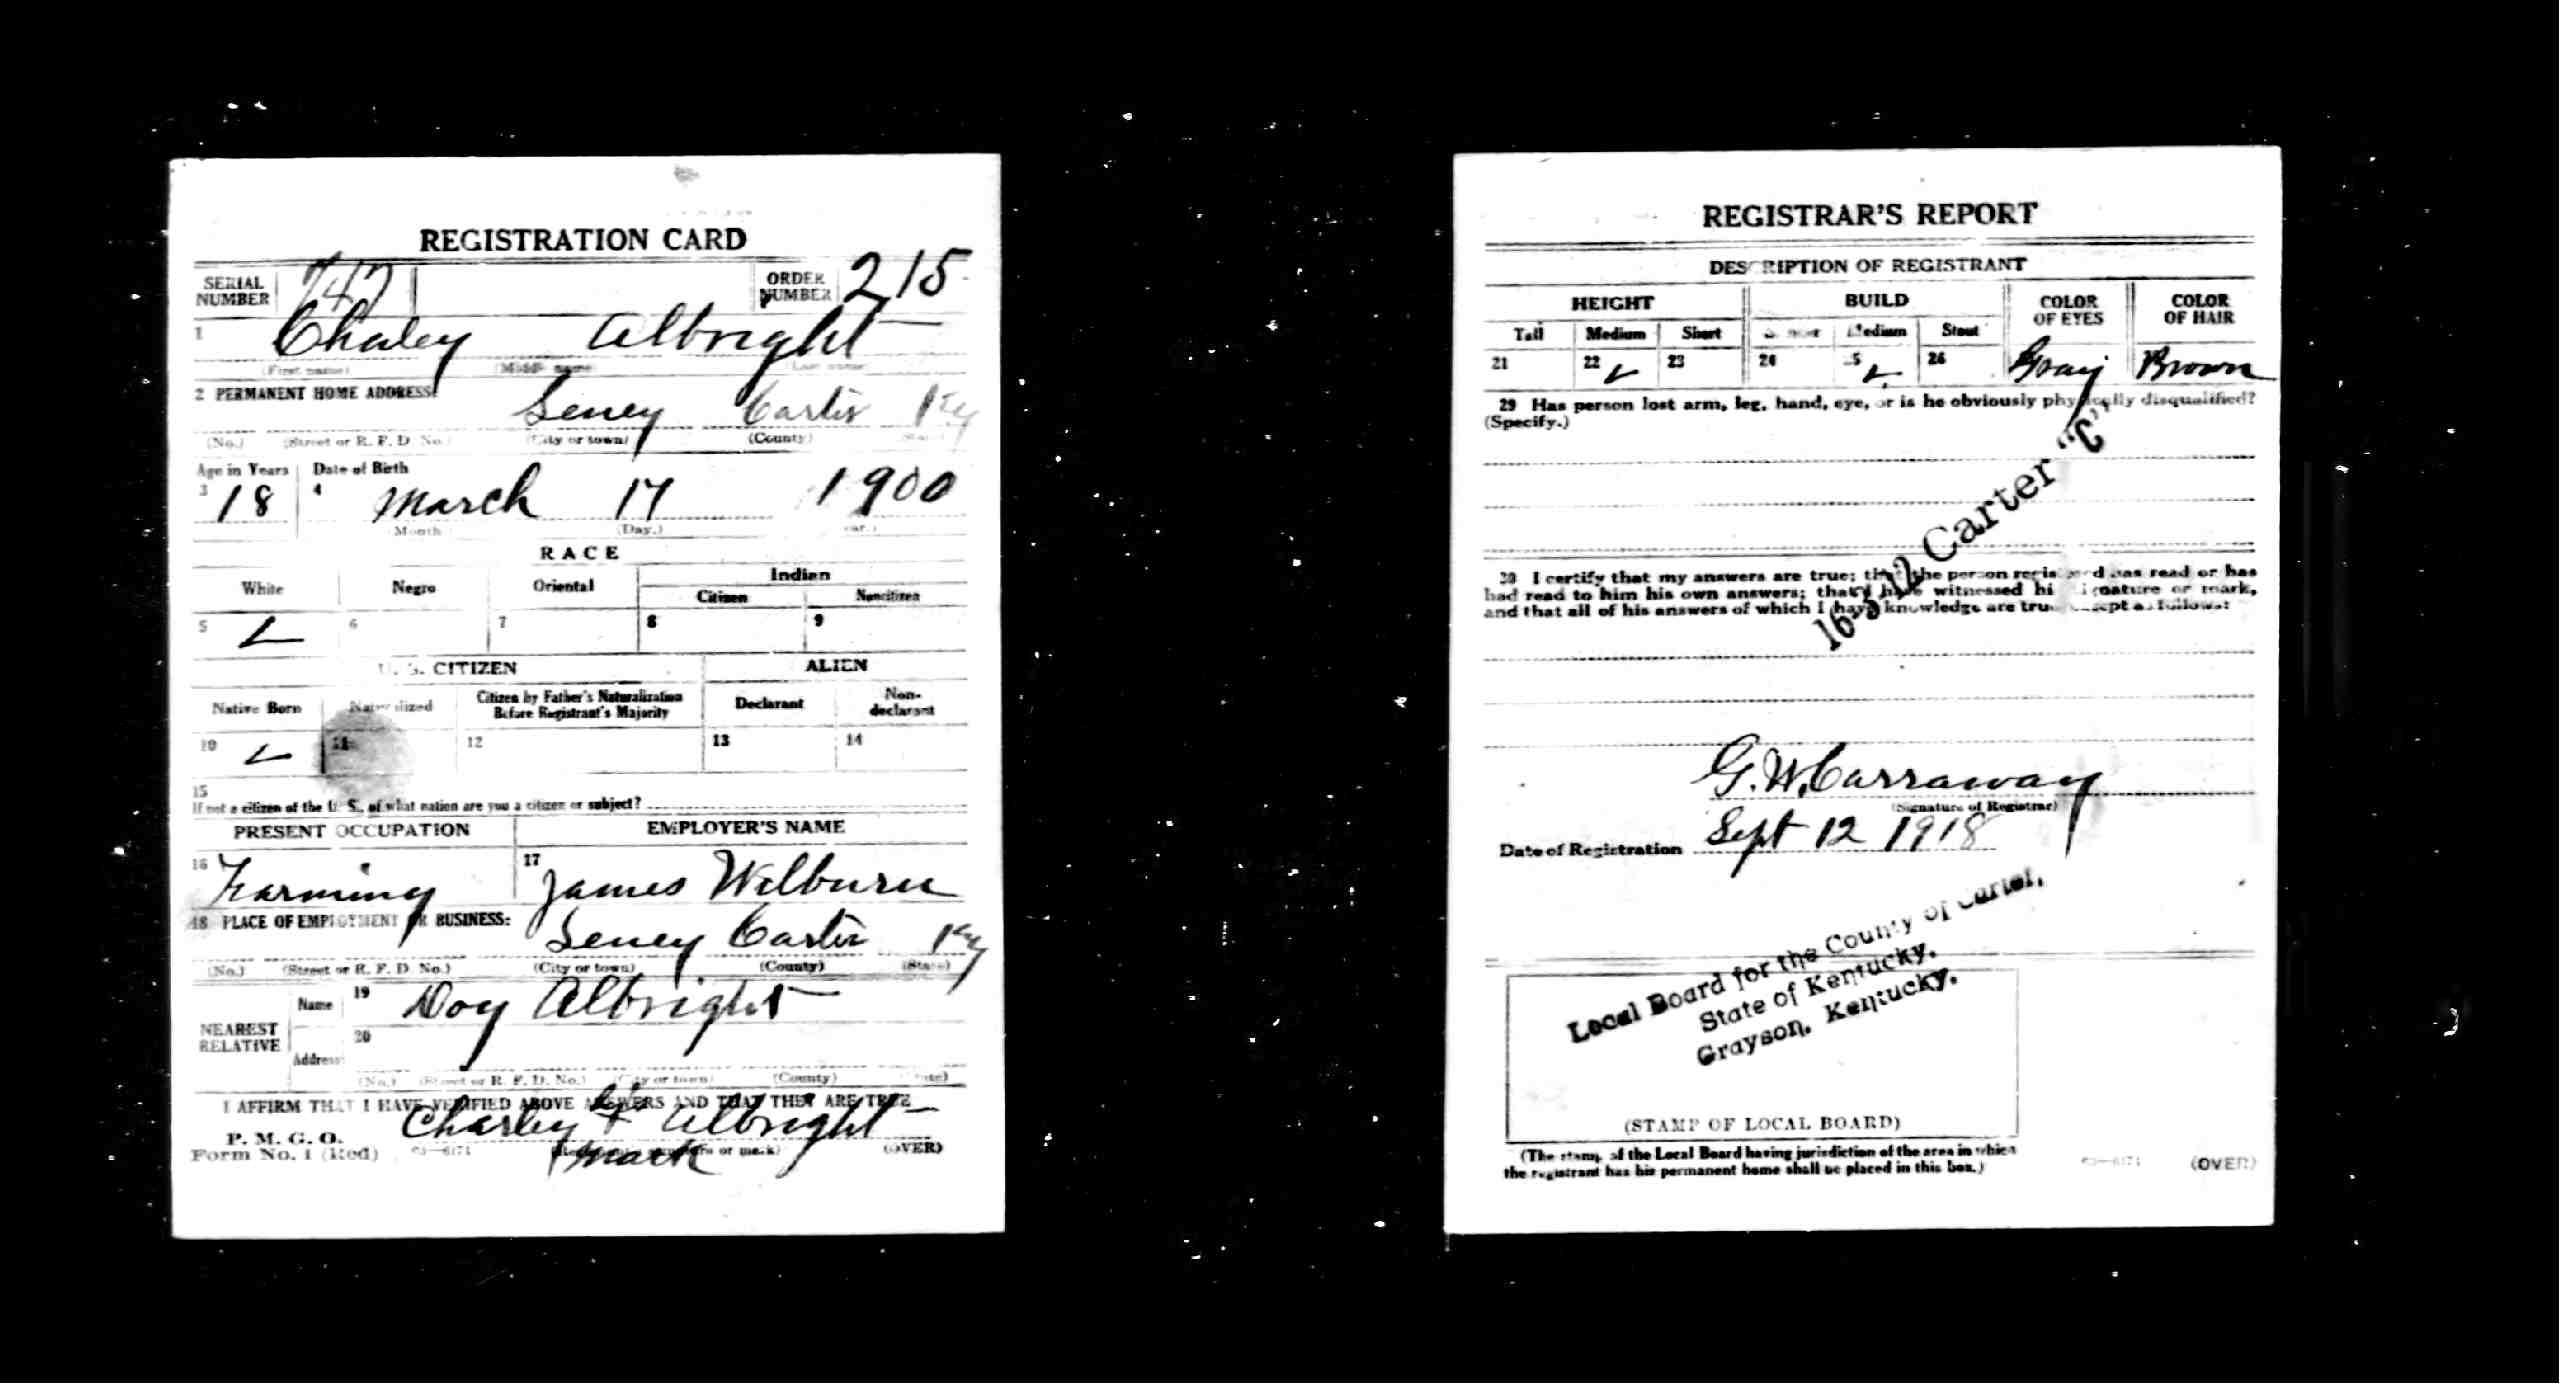 REGISTRATION CARD
SERIAL NUMBER 747 ORDER NUMBER 215
1 Chaley Albright
(First name) (Middle name) (Last name)
2 PERMANENT HOME ADDRESS:
Seney Carter Ky
(No.) (Street or R. F. D. No.) (City or town) (County) (State)
Age in Years Date of Birth
3 18 4 March 17 1900
(Month) (Day.) (Year.)
RACE
White Negro Oriental Indian
Citizen Noncitizen
5 6 7 8 9
U. S. CITIZEN ALIEN
Native Born Naturalized Citizen by Father's Naturalization Before Registrant's Majority Declarant Non-declarant
10 11 12 13 14
15
If not a citizen of the U. S., of what nation are you a citizen or subject?
PRESENT OCCUPATION EMPLOYER'S NAME
16 Farming 17 James Wilburn
18 PLACE OF EMPLOYMENT OR BUSINESS:
Seney Carter Ky
(No.) (Street or R. F. D. No.) (City or town) (County) (State)
NEAREST RELATIVE Name 19 Doy Albright
Address: 20
(No.) (Street or R. F. D. No.) (City or town) (County) (State)
I AFFIRM THAT I HAVE VERIFIED ABOVE ANSWERS AND THAT THEY ARE TRUE
P. M. G. O.
Form No. 1 (Red)
Charley his x Albright
mark
(Registrant's signature or mark) (OVER)
REGISTRAR'S REPORT
DESCRIPTION OF REGISTRANT
HEIGHT BUILD COLOR OF EYES COLOR OF HAIR
Tall Medium Short Slender Medium Stout
21 22 23 24 25 26 Gray Brown
29 Has person lost arm, leg, hand, eye, or is he obviously physically disqualified?
(Specify.)
16-3-12 Carter "C"
30 I certify that my answers are true; that the person registered has read or has
had read to him his own answers; that I have witnessed his signature or mark,
and that all of his answers of which I have knowledge are true, except as follows:
G. W. Carraway
(Signature of Registrar)
Date of Registration Sept 12 1918
Local Board for the County of Carter,
State of Kentucky.
Grayson, Kentucky.
(STAMP OF LOCAL BOARD)
(The stamp of the Local Board having jurisdiction of the area in which
the registrant has his permanent home shall be placed in this box.)
(OVER)